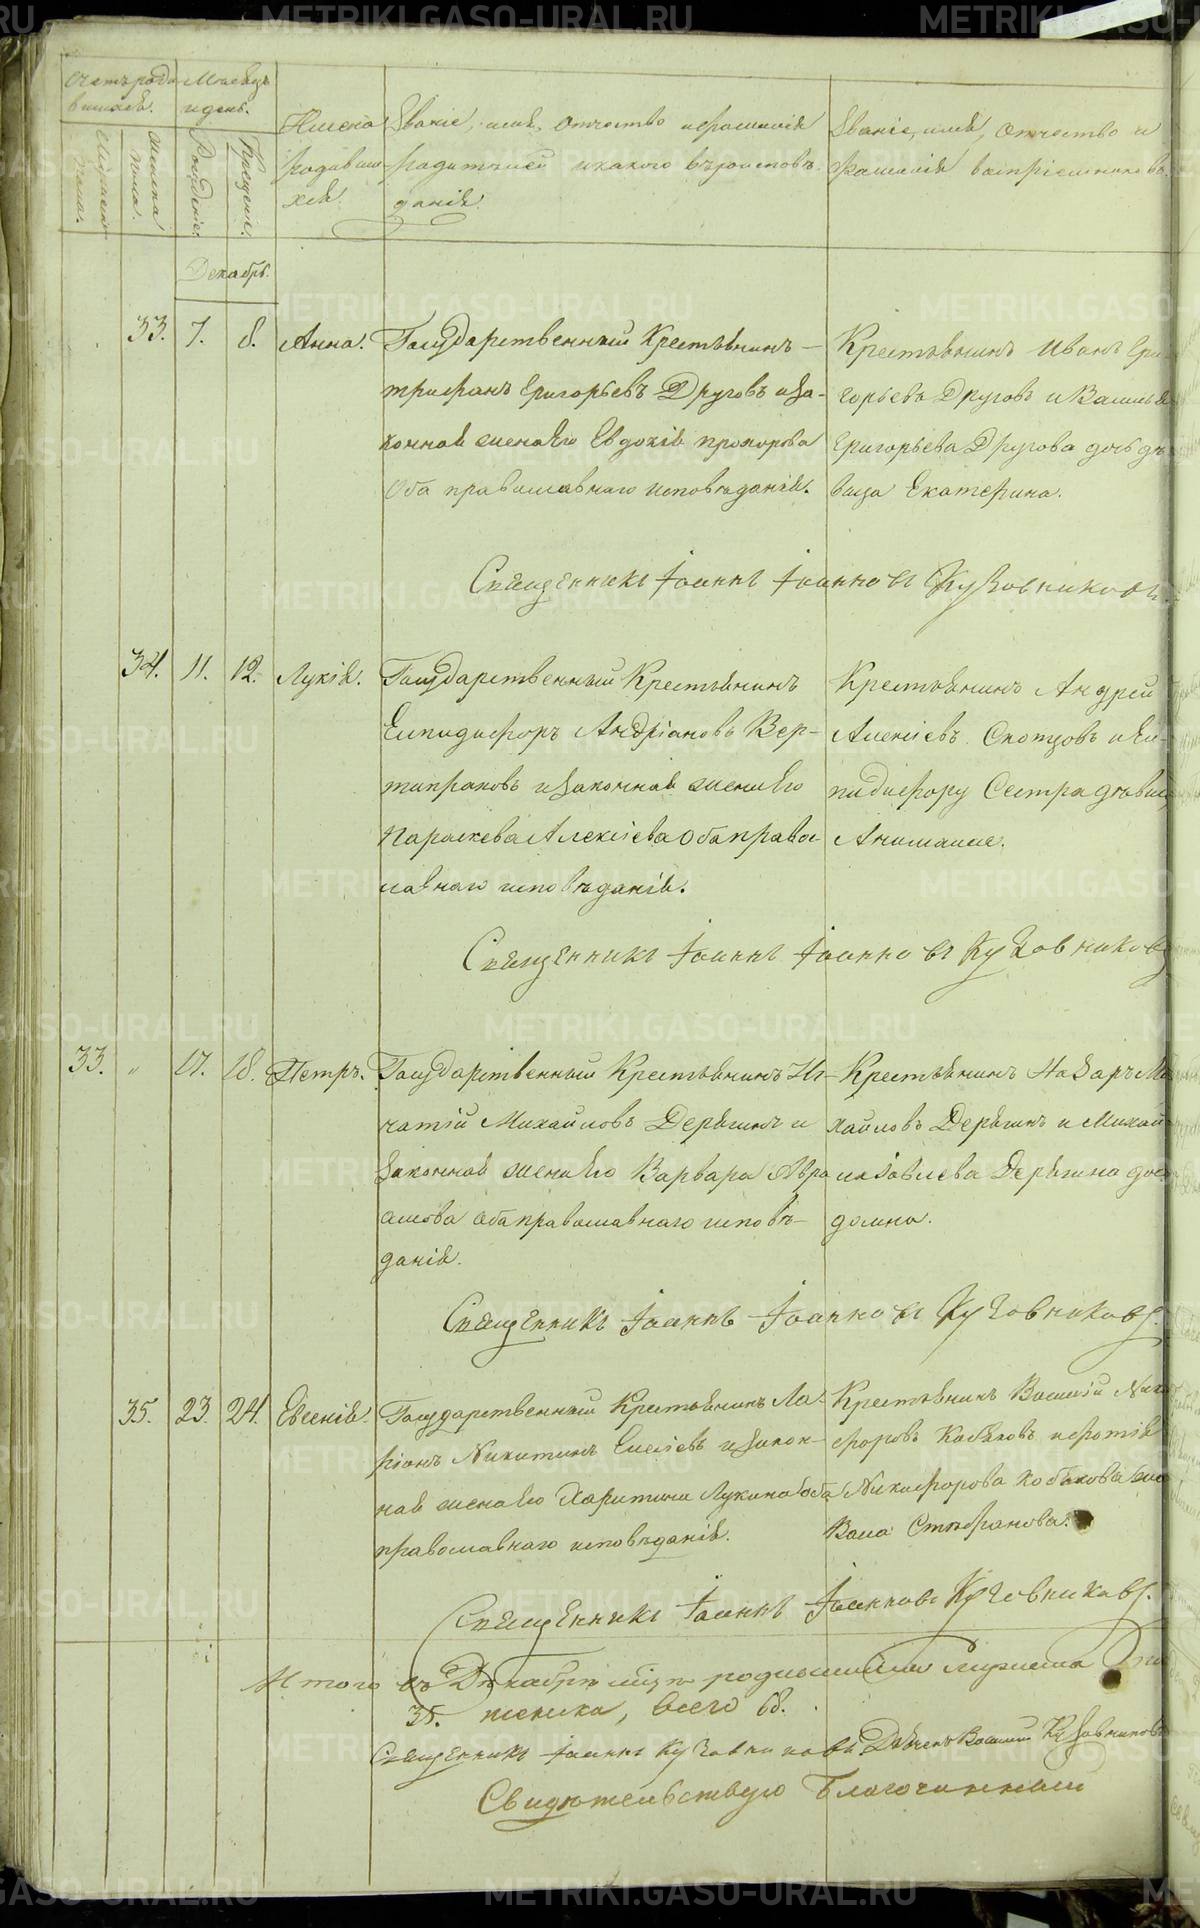 METRIKI.GASO-URAL.RU
Счетъ роди-
вшихся.
Мѣсяцъ
и день.
Мужеска
пола.
Женска
пола.
Рожденія.
Крещенія.
Имена
родивши-
хся.
Званіе, имя, отчество и фамилія
родителей и какого вѣроисповѣ-
данія.
Званіе, имя, отчество и
фамилія воспріемниковъ.
Декабрь.
33. 7. 8. Анна.
Государственный Крестьянинъ
Трифанъ Григорьевъ Друговъ и за-
конная жена его Евдокія Прохорова
Оба православнаго исповѣданія.
Крестьянинъ Иванъ Гри
горьевъ Друговъ и Василья
Григорьева Другова дочь дѣ
вица Екатерина.
Священникъ Іоаннъ Іоанновъ Кузовниковъ.
34. 11. 12. Лукія.
Государственный Крестьянинъ
Елпидифоръ Андріановъ Вер-
типраховъ и законная жена его
Параскева Алексіева Оба право
славнаго исповѣданія.
Крестьянинъ Андрей
Алексіевъ Скотцовъ и Ел-
пидифору Сестра дѣвиц
Священникъ Іоаннъ Іоанновъ Кузовниковъ
33. " 17. 18. Петръ.
Государственный Крестьянинъ Иг-
натій Михайловъ Дерягинъ и
законная жена его Варвара Авра
амова оба православнаго исповѣ-
данія.
Крестьянинъ Назаръ Ми
хайловъ Дерягинъ и Михай
ла Савлева Дерягина доч
домна.
Священникъ Іоаннъ Іоанновъ Кузовниковъ.
35. 23. 24. Евгенія.
Государственный Крестьянинъ Ла-
ріонъ Никитинъ Елисіевъ и закон-
ная жена его Харитина Лукина оба
православнаго исповѣданія.
Крестьянинъ Василій Ники
форовъ Кобяковъ и Фотія
Никифорова Кобякова
Стефанова.
Священникъ Іоаннъ Іоанновъ Кузовниковъ.
Итого въ Декабрѣ мѣсяцѣ родившихся мужеска
35. женска, всего 68.
Священникъ Іоаннъ Кузовниковъ Дьячекъ Василій Кузовниковъ
Свидѣтельствую Благочинный